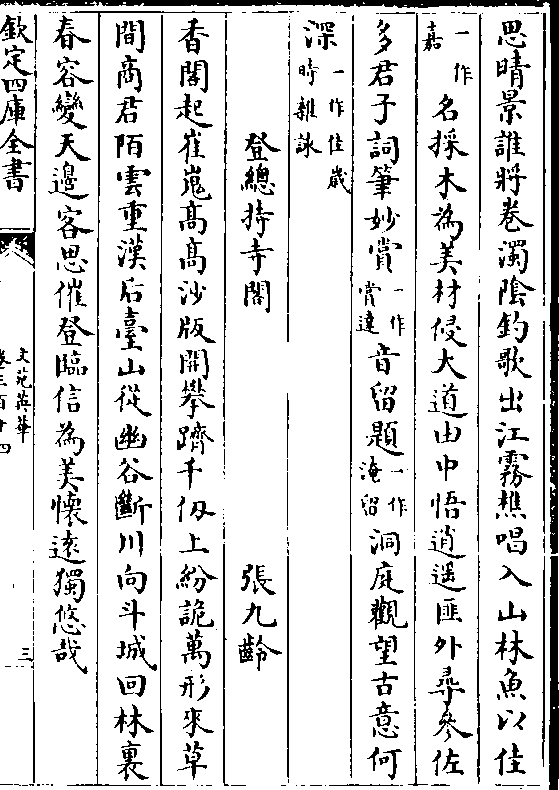 思晴景誰將卷濁陰釣歌出江霧樵唱入山林魚以佳
一作嘉名採木為美材侵大道由中悟逍遥匪外尋參佐
多君子詞筆妙賞一作賞達音留題一作淹留洞庭觀望古意何
深一作佳歳時雜詠
登總持寺閣 張九齡
香閣起崔嵬高高沙版開攀躋千仭上紛詭萬形來草
間商君陌雲重漢后臺山從幽谷斷川向斗城回林裏
春容變天邊客思催登臨信為美懷遠獨悠哉
欽定四庫全書
文苑英華
卷三百十四
三